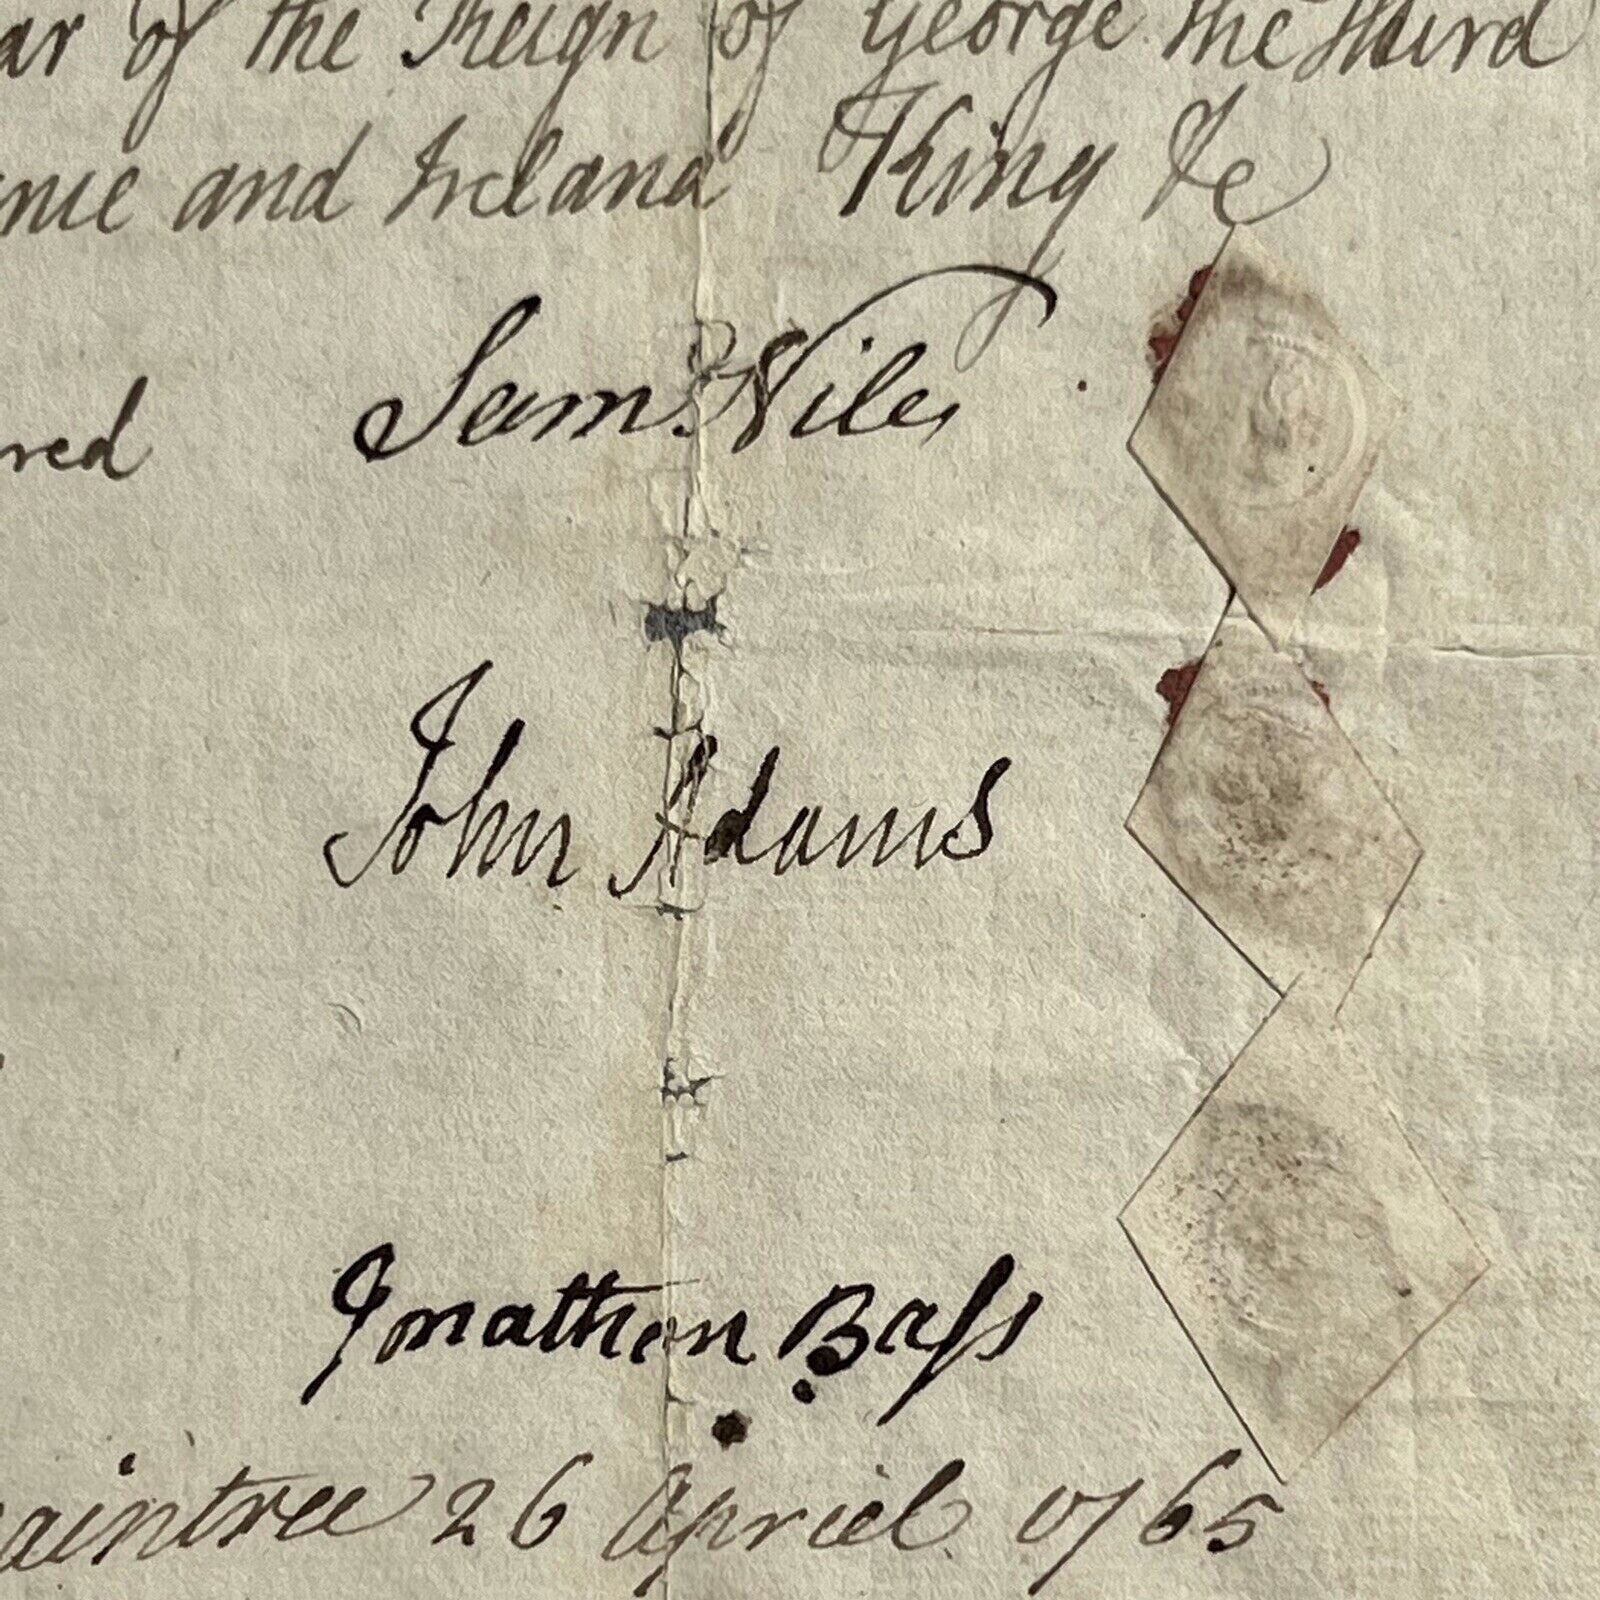 ar of the Reign of George the third
nce and Ireland King &c
Sam. Niles
red
John Adams
Jonathan Bass
raintree 26 April 1765